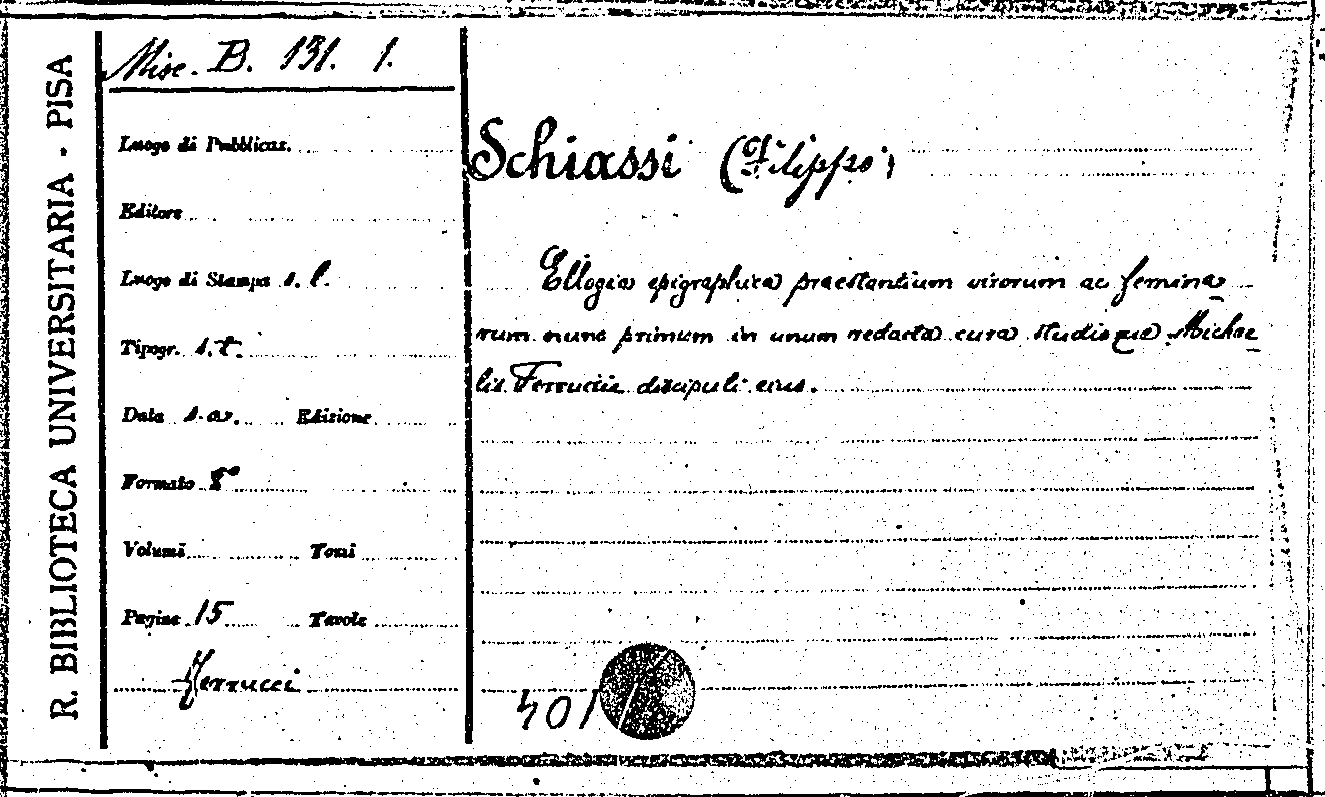 R. BIBLIOTECA UNIVERSITARIA - PISA
Misc. B. 131. 1.
Luogo di Pubblicaz.
Editore
Luogo di Stampa s. l.
Tipogr. s. t.
Data s. a. Edizione
Formato 8°
Volumi Tomi
Pagine 15 Tavole
Ferrucci
Schiassi (Filippo)
Ellogia epigraphica praestantium virorum ac femina
rum nunc primum in unum redacta cura studioque Michae
lis Ferruccii discipuli eius.
401